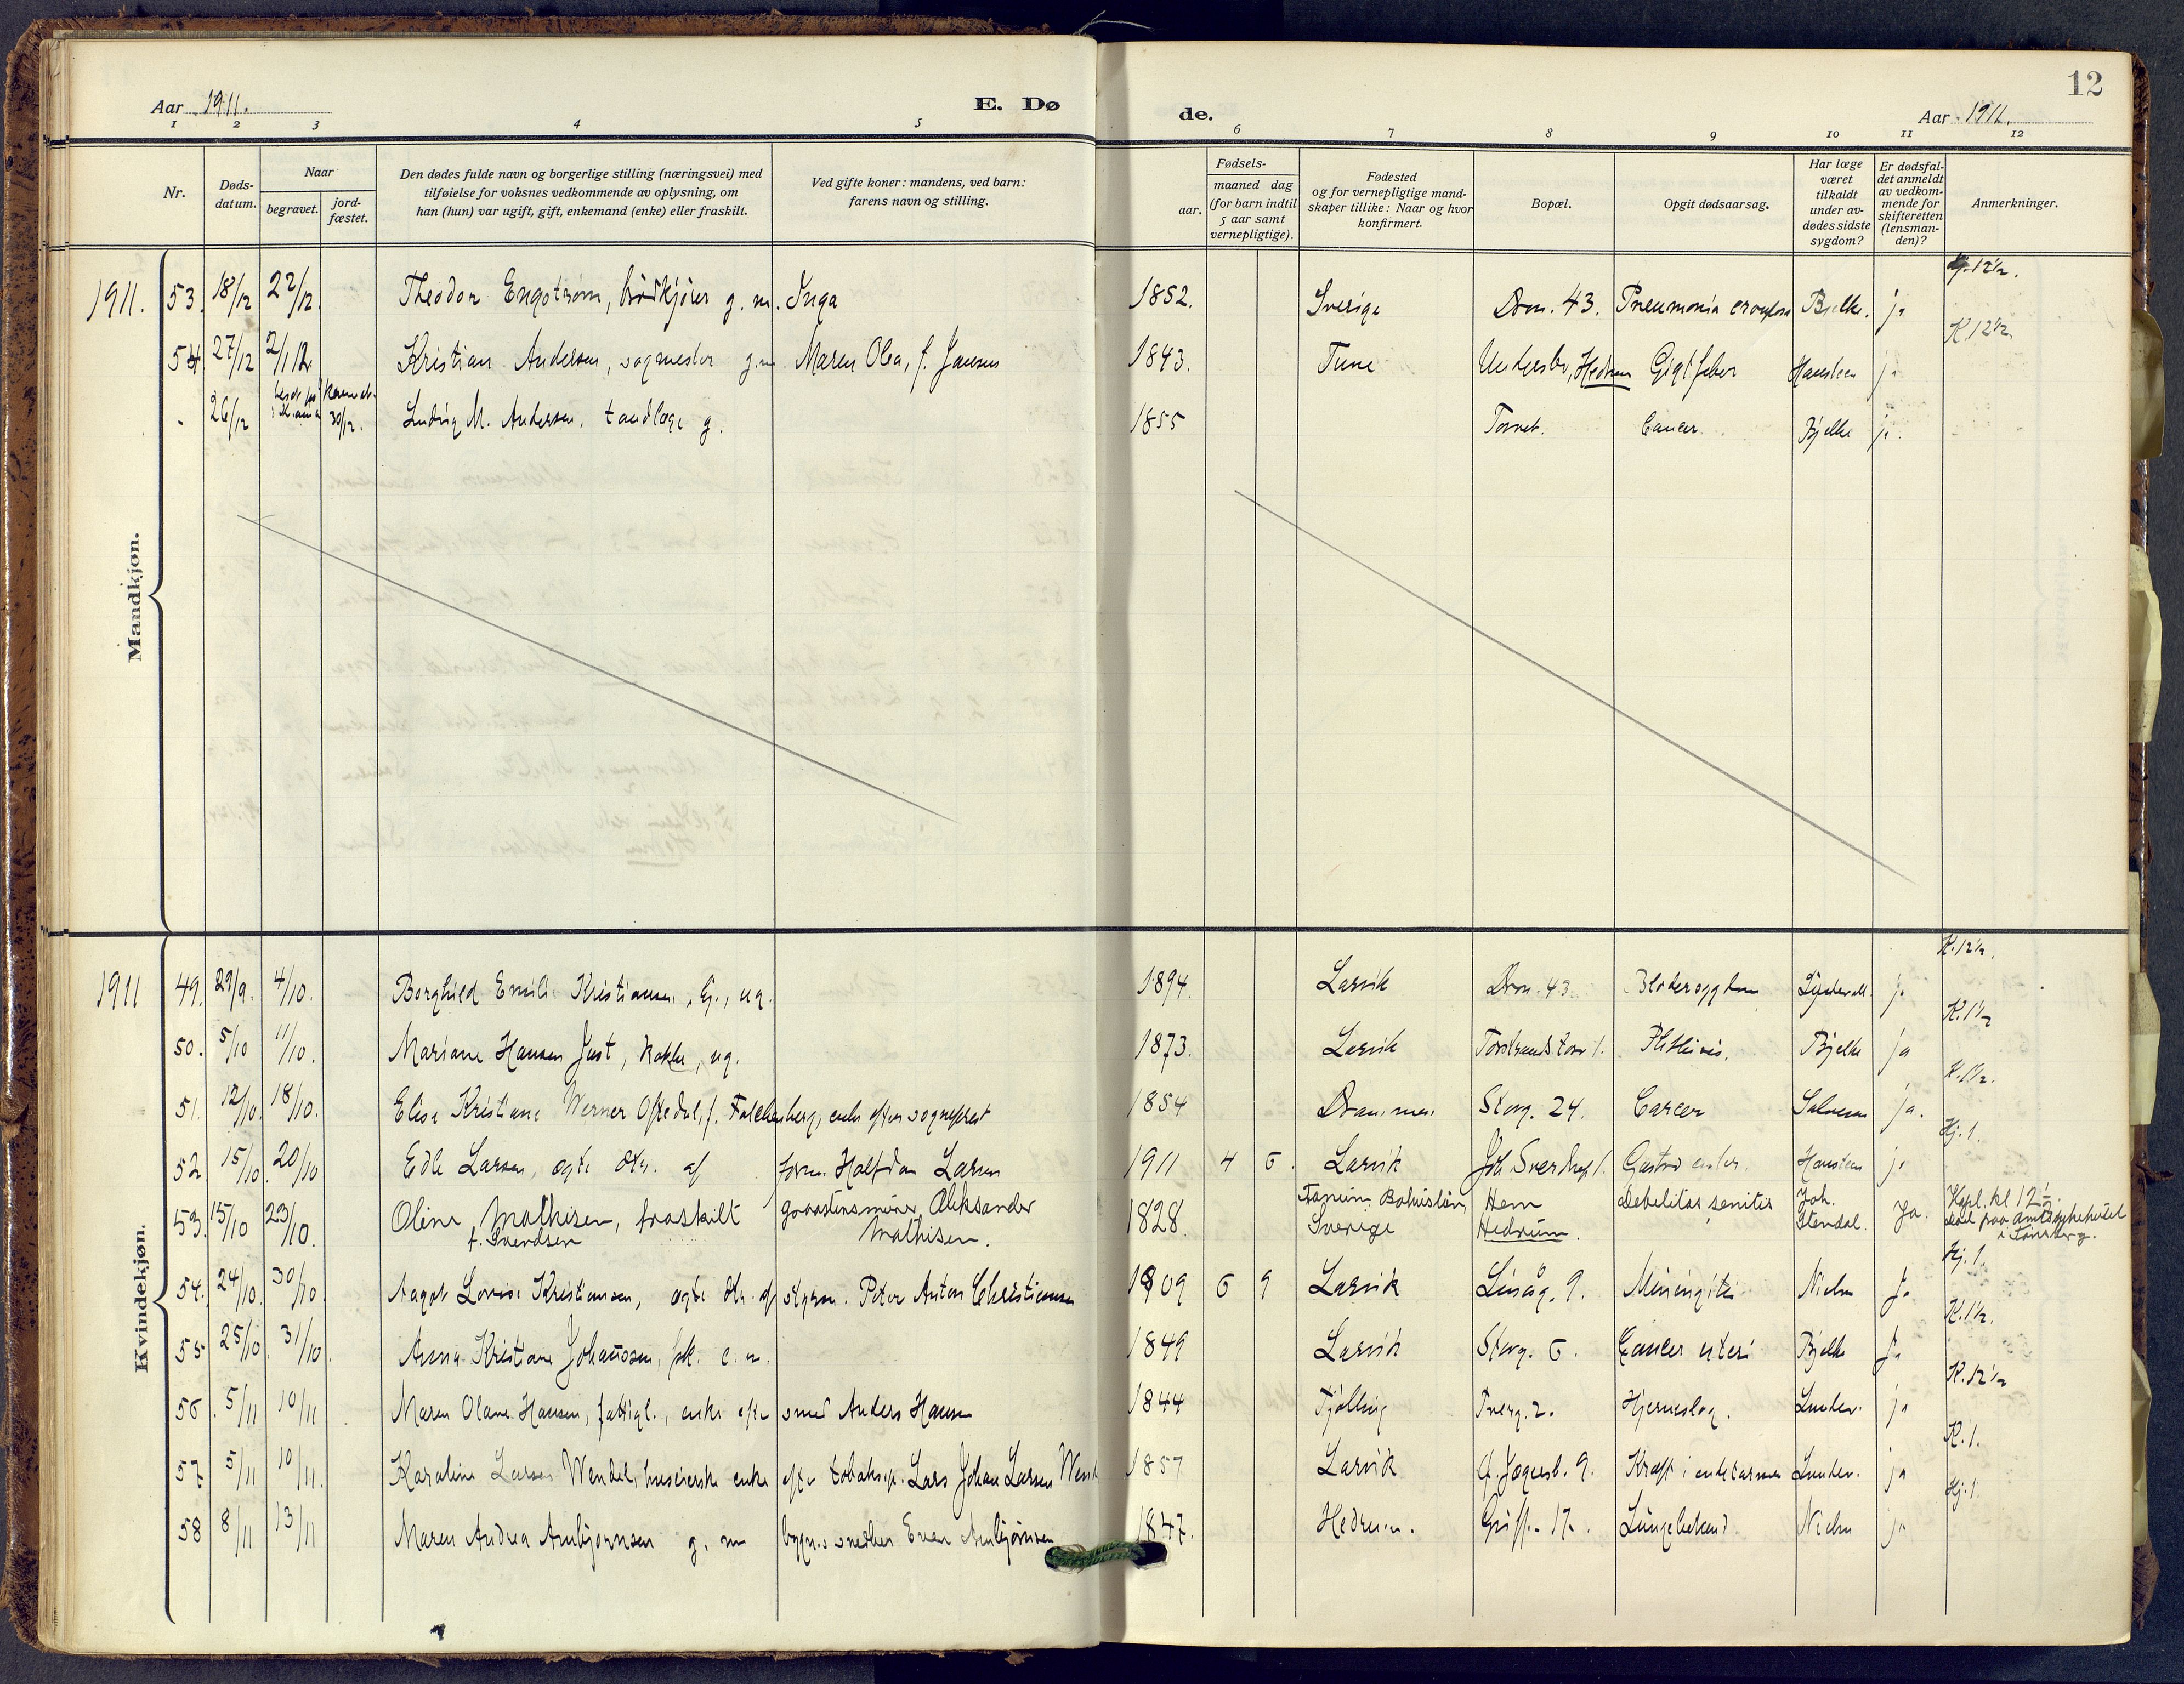 Aar 1911.
E. Dø
de.
Aar 1911.
12
1 2 3 4 5 6 7 8 9 10 11 12
Nr.
Døds-
datum.
Naar
begravet.
jord-
fæstet.
Den dødes fulde navn og borgerlige stilling (næringsvei) med
tilføielse for voksnes vedkommende av oplysning, om
han (hun) var ugift, gift, enkemand (enke) eller fraskilt.
Ved gifte koner: mandens, ved barn:
farens navn og stilling.
Fødsels-
aar.
maaned dag
(for barn indtil
5 aar samt
vernepligtige).
Fødested
og for vernepligtige mand-
skaper tillike: Naar og hvor
konfirmert.
Bopæl.
Opgit dødsaarsag.
Har læge
været
tilkaldt
under av-
dødes sidste
sygdom?
Er dødsfal-
det anmeldt
av vedkom-
mende for
skifteretten
(lensman-
den)?
Anmerkninger.
Mandkjøn.
1911. 53. 18/12 22/12. Theodor Engstrøm, g. m. Inga 1852. Sverige Dron. 43. Pneumonia Bjelke. ja 12½.
54 27/12 2/1 12. Kristian Andersen, sagmester g.m. Maren Olea, f. Jansen 1843. Tune Hedrum Gigtfeber Hansteen ja K 12½.
26/12 30/12. Ludvig M. Andersen, tandlæge g. 1855 Torvet. Cancer Bjelke ja.
Kvindekjøn.
1911 49. 29/9. 4/10. Borghild Emilie Kristiansen, ug. 1894. Larvik Dron. 43. Blodersygdom ja K. 12½.
50. 5/10 11/10. Mariane Hansen Just, kokke, ug. 1873. Larvik Torstrandstorv 1. Phthisis. Bjelke ja K. 1½
51. 12/10. 18/10. Elise Kristiane Werner Oftedal, f. Falchenberg, enke efter sogneprest 1854 Drammen Storg. 24. Cancer Salvesen ja. K. 1½.
52 15/10 20/10 Edle Larsen, ogte dtr. af form. Halfdan Larsen 1911 4 6. Larvik Joh Sverdrups Gastro enter. Hansteen ja Kj. 1.
53. 15/10 23/10. Oline Mathisen, fraskilt
f. Svendsen
Aleksander
Mathisen. 1828. Tanum Bohuslän,
Sverige
Hem
Hedrum. Debilitas senilis Joh.
Stendal. ja. Kapl. kl 12½.
død paa Amtssykehuset
i Tønsberg.
54. 24/10. 30/10 Aagot Lovise Kristiansen, ogte dtr. af styrm. Peter Anton Christiansen 1909 6 9 Larvik Linåg. 9. Meningitis Nielsen ja Kj. 1.
55 25/10 31/10 Anna Kristiane Johanssen, 1849 Larvik Storg. 6. Cancer uteri Bjelke ja K. 1½.
56. 5/11 10/11 Maren Olane Hansen, fattigl., enke efter smed Anders Hansen 1844 Tjølling Tverg. 2. Hjerneslag. Linder. ja K. 12½
57 5/11 10/11. Karoline Larsen Wendel, huseierske enke efter tobaksp. Lars Johan Larsen Wend 1857 Larvik Jægersb. 9. Kræft i endetarmen Linder. ja K. 1.
58 8/11 13/11 Maren Andrea Anbjørnsen g. m bygn.snedker Even Anbjørnsen 1847. Hedrum. Griff. 17. Lungebetænd. Nielsen ja Kj. 1.